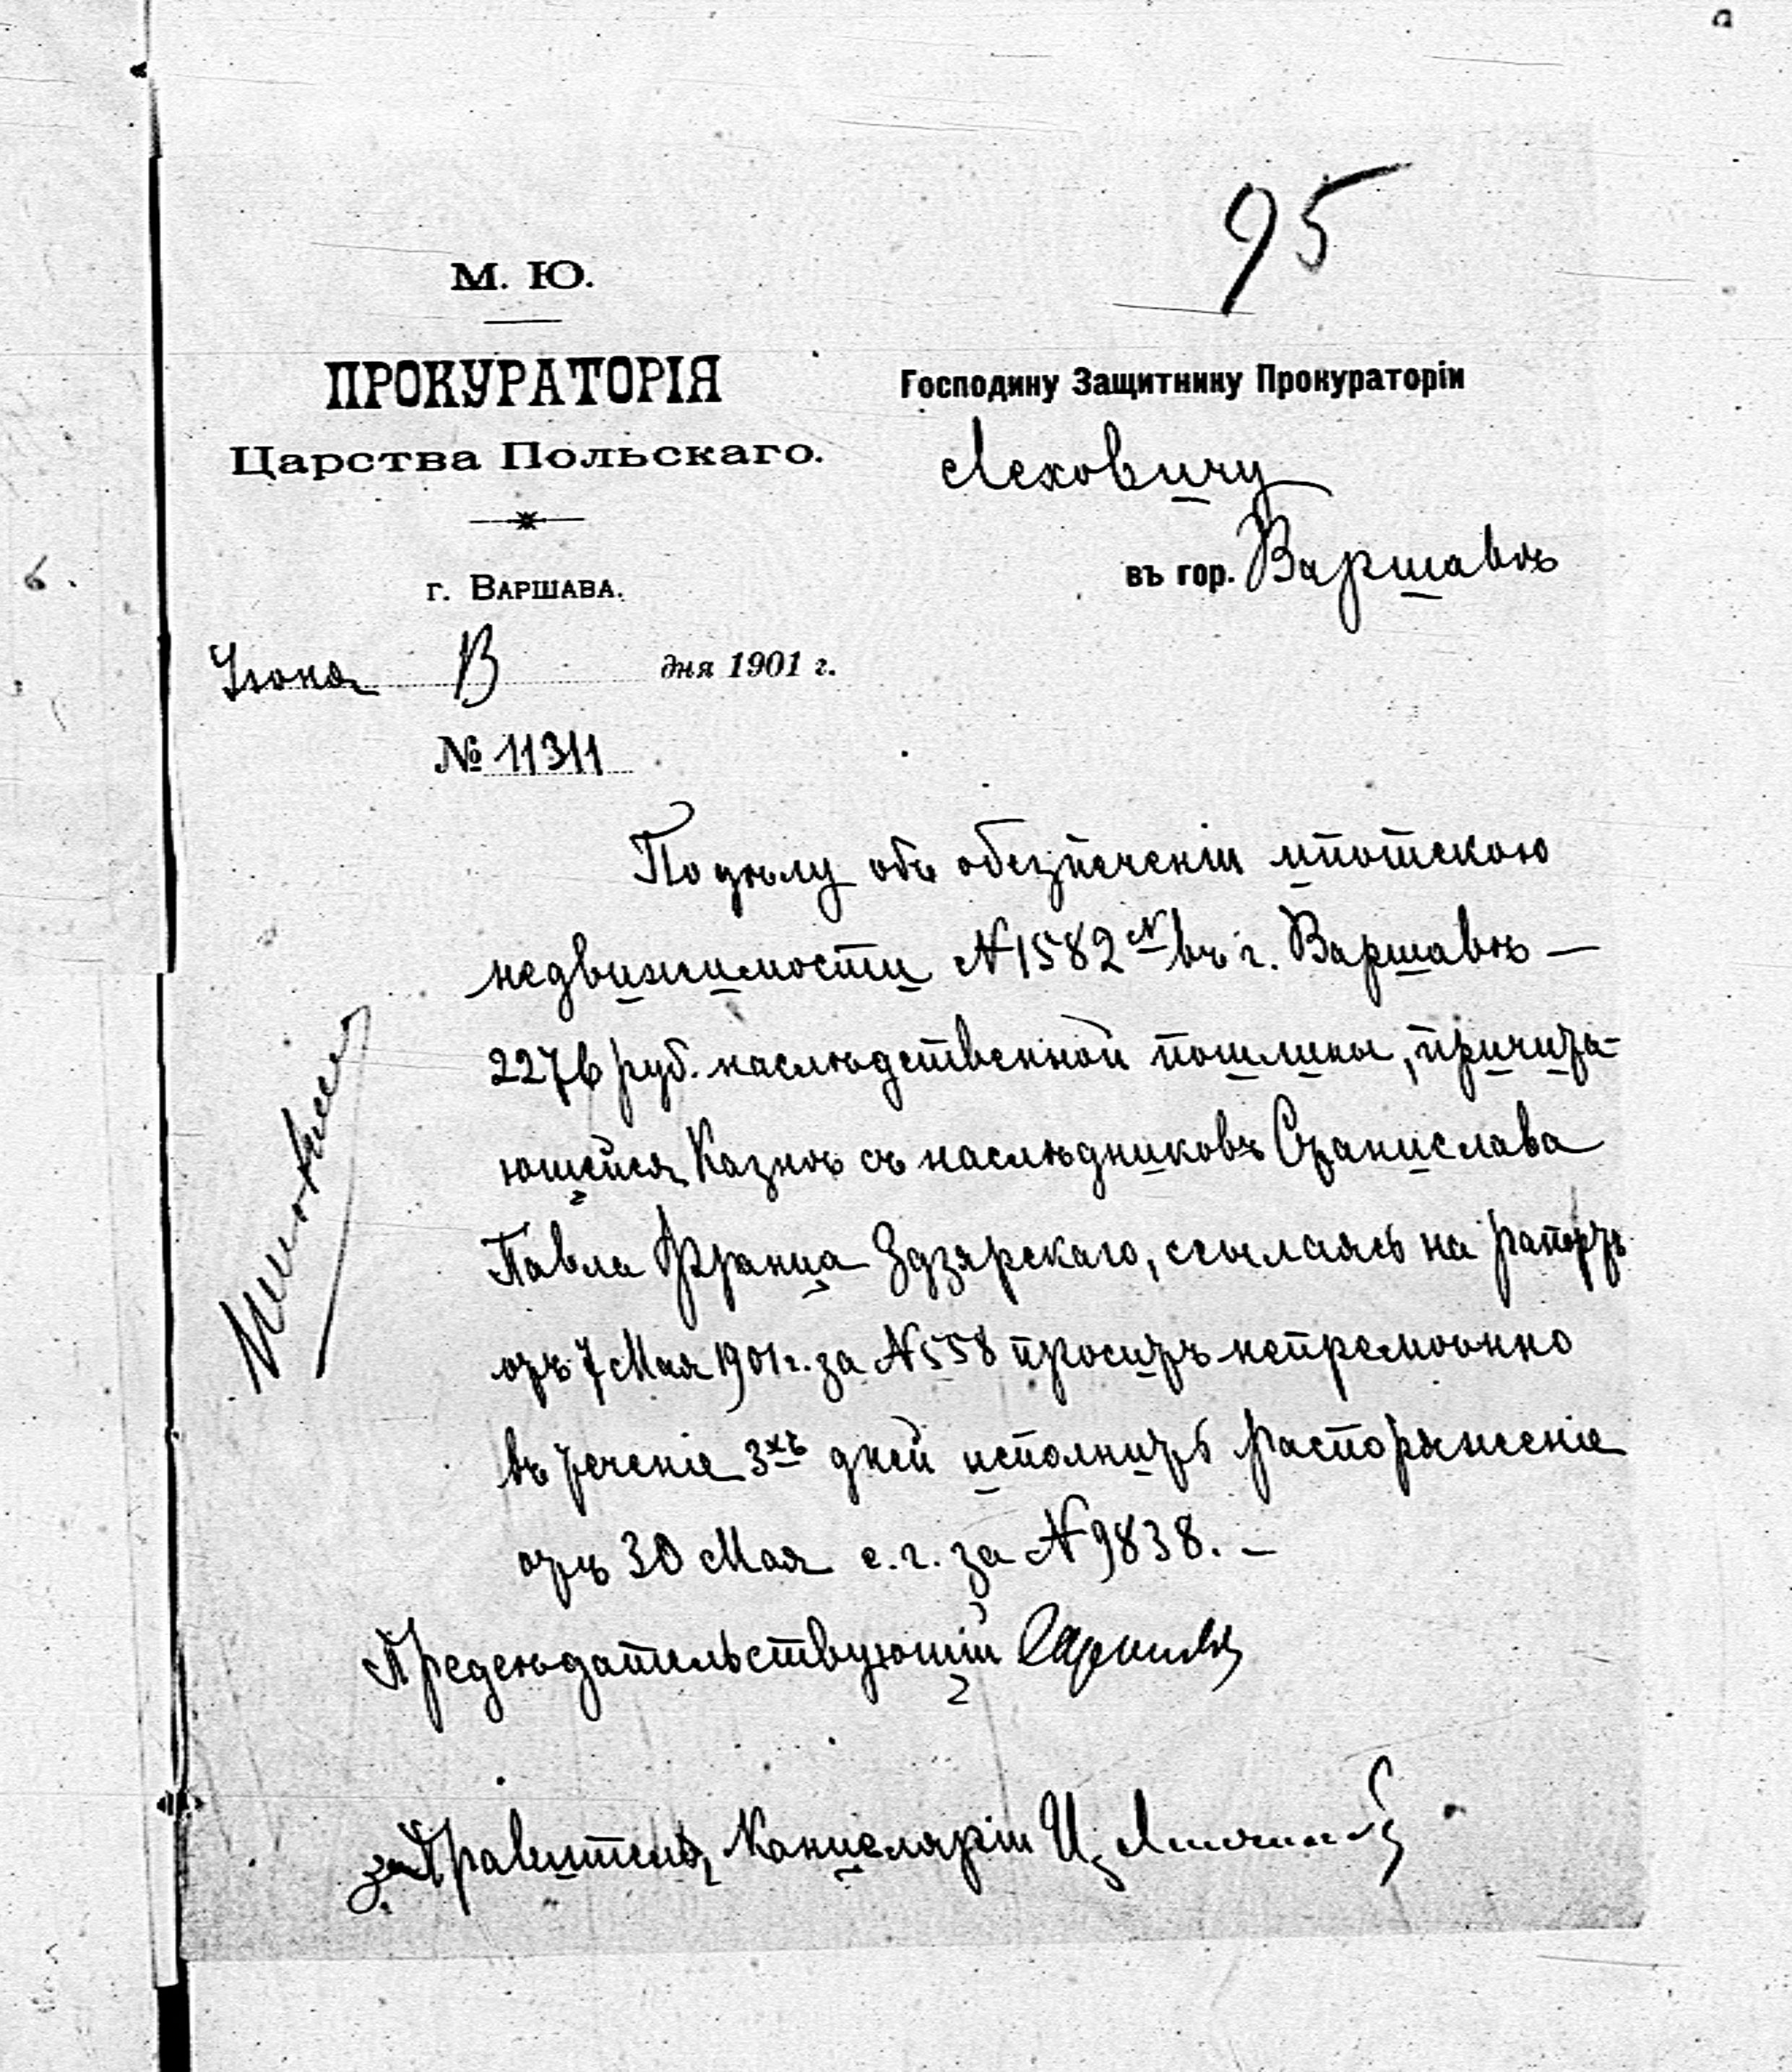 95
М. Ю.
ПРОКУРАТОРІЯ
Царства Польскаго.
г. Варшава.
Іюня 13 дня 1901 г.
№ 11311
Господину Защитнику Прокураторіи
Леховичу
въ гор. Варшавѣ
По дѣлу объ обезпеченіи ипотекою
недвижимости N 1582 N въ г. Варшавѣ —
2276 руб. наслѣдственной пошлины, причита-
ющейся Казнѣ съ наслѣдниковъ Станислава
Павла Франца Здзярскаго, ссылаясь на рапортъ
отъ 7 Мая 1901 г. за N 558 проситъ непремѣнно
въ теченіе 3хъ дней исполнить распоряженіе
отъ 30 Мая с. г. за N 9838. —
Предсѣдательствующій
за Правителя Канцеляріи